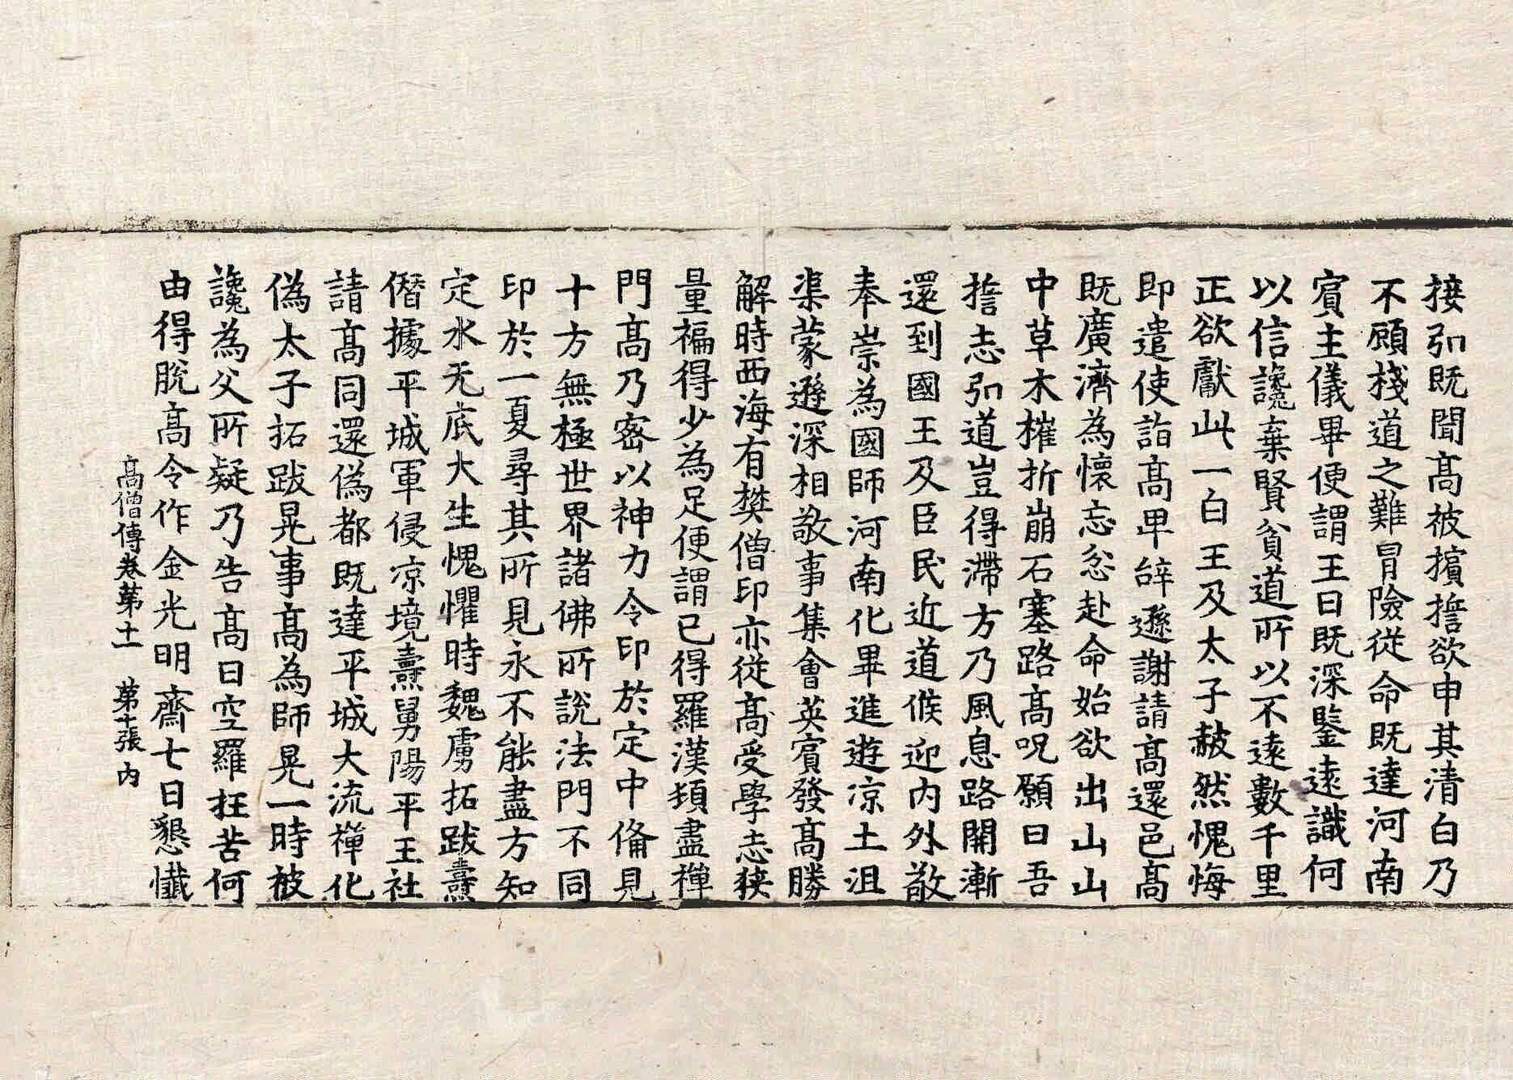 接弘既聞髙被擯誓欲申其清白乃
不顧棧道之難冒險從命既達河南
賓主儀畢便謂王曰既深鑒遠識何
以信讒棄賢貧道所以不遠數千里
正欲獻此一白王及太子赧然愧悔
即遣使詣髙卑辭遜謝請髙還邑髙
既廣濟為懷忘忿赴命始欲出山山
中草木摧折崩石塞路髙呪願曰吾
誓志弘道豈得滯方乃風息路開漸
還到國王及臣民近道候迎内外敬
奉崇為國師河南化畢進遊凉土沮
渠蒙遜深相敬事集會英賓發髙勝
解時西海有樊僧印亦從髙受學志狹
量褊得少為足便謂已得羅漢頓盡禪
門髙乃密以神力令印於定中備見
十方無極世界諸佛所說法門不同
印於一夏尋其所見永不能盡方知
定水无底大生愧懼時魏虜拓跋燾
僭據平城軍侵凉境燾舅陽平王社
請髙同還偽都既達平城大流禪化
偽太子拓跋晃事髙為師晃一時被
讒為父所疑乃告髙曰空羅枉苦何
由得脫髙令作金光明齋七日懇懺
髙僧傳卷第十一 第十張 内